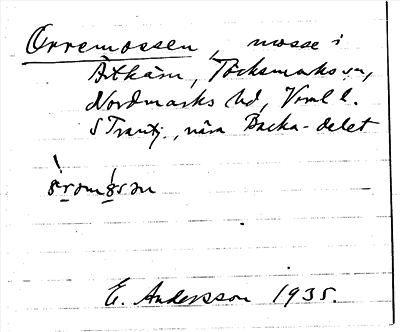 Orremossen, mosse i
Töcksmarks sn,
Nordmarks hd, Vrml l.
S Trantj., nära Backa-delet
E. Andersson 1935.